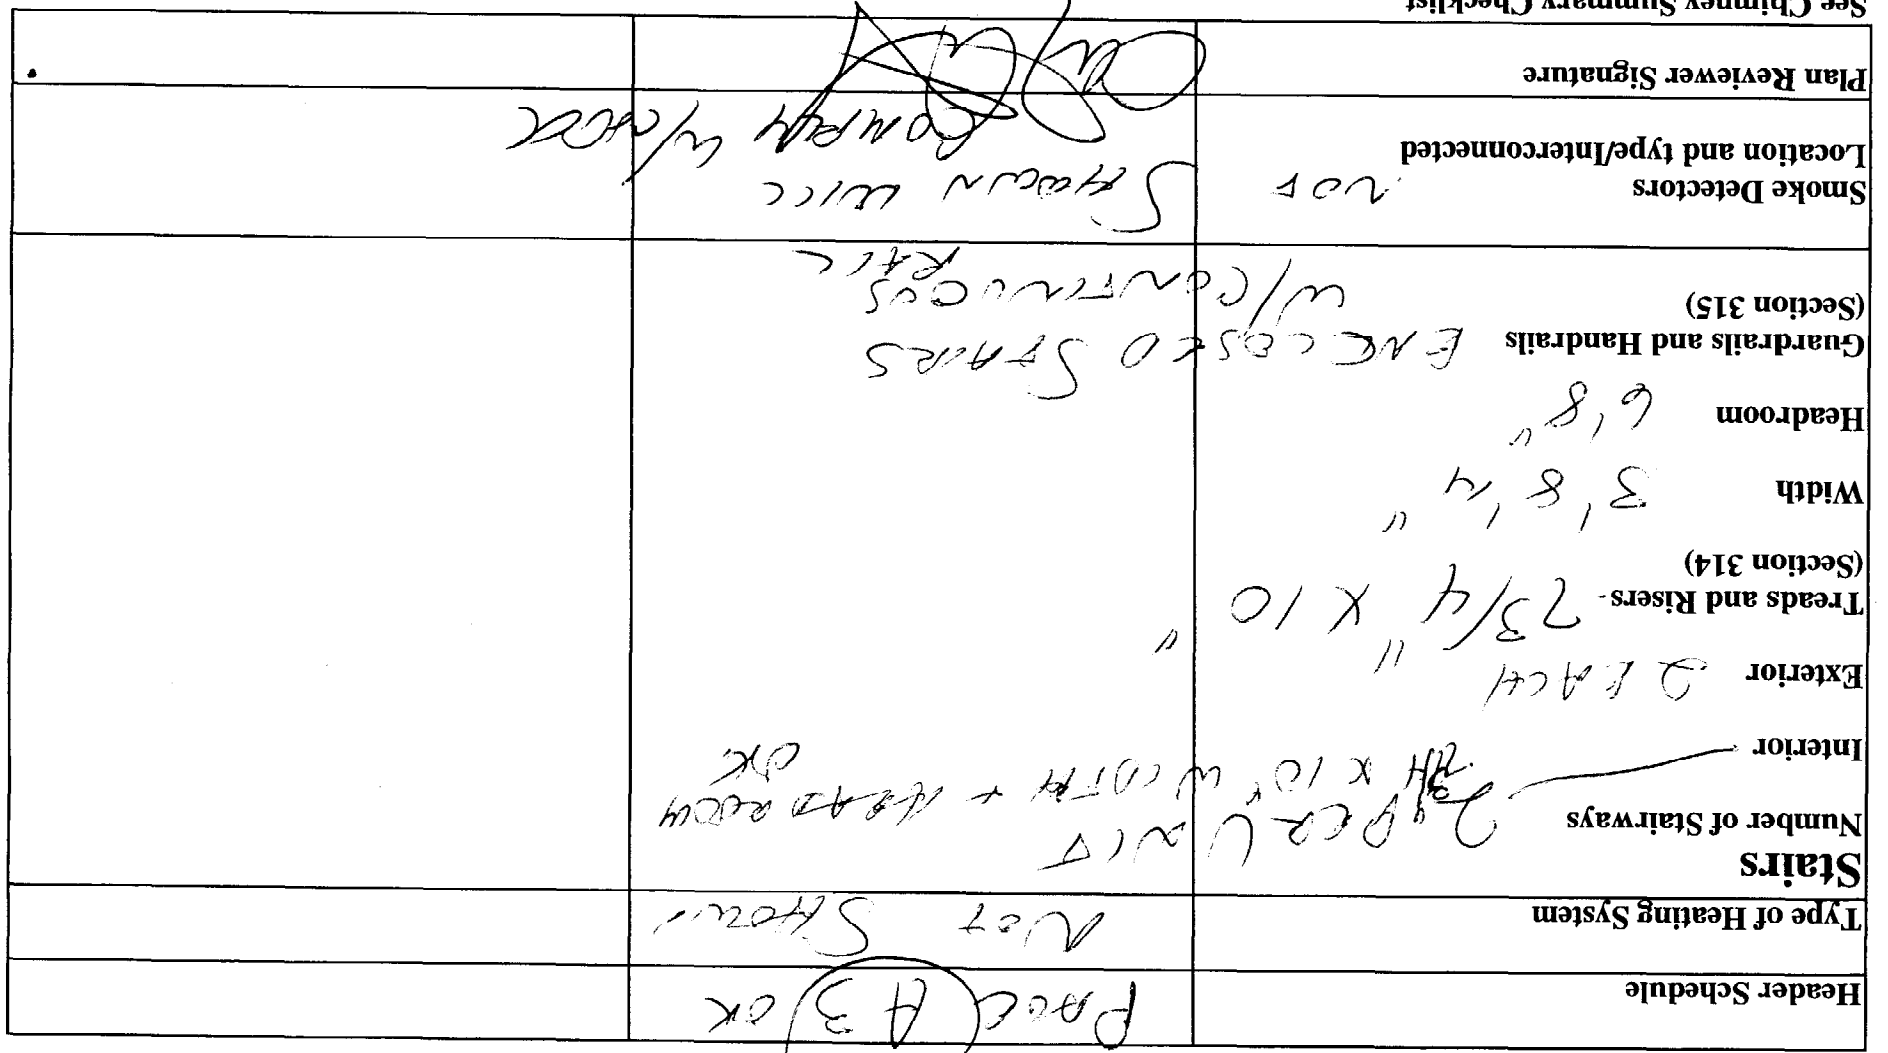 Header Schedule PAGE A3 OK
Type of Heating System NOT SHOWN
Stairs
Number of Stairways 2 PER UNIT
Interior X 10" WIDTH + HEADROOM OK
Exterior 2 EACH
Treads and Risers 7 3/4" X 10"
(Section 314)
Width 3' 8 1/4"
Headroom 6' 8"
Guardrails and Handrails ENCLOSED STAIRS
(Section 315) W/CONTINUOUS RAIL
Smoke Detectors NOT SHOWN WILL
Location and type/Interconnected COMPLY W/CODE
Plan Reviewer Signature
See Chimney Summary Checklist